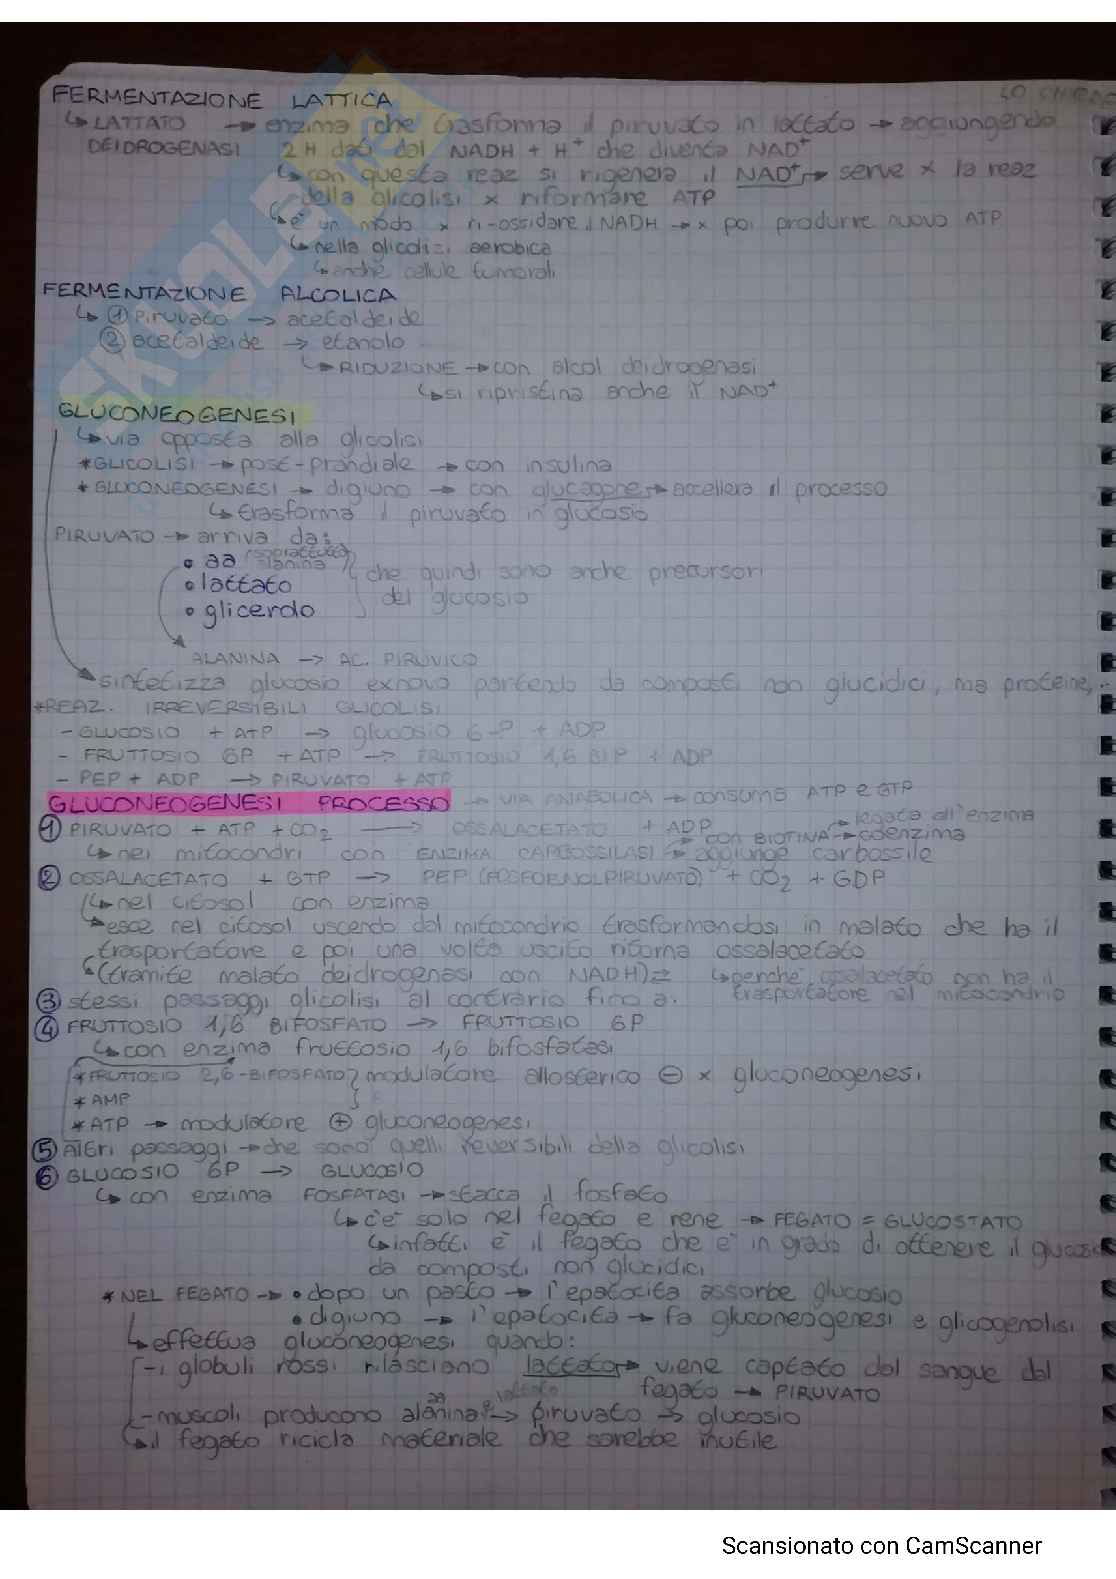 LO CHIEDE
FERMENTAZIONE LATTICA
↳ LATTATO → enzima che trasforma il piruvato in lattato → aggiungendo
DEIDROGENASI 2 H dati dal NADH + H⁺ che diventa NAD⁺
↳ con questa reaz si rigenera il NAD⁺ → serve x la reaz
della glicolisi x riformare ATP
↳ è un modo x ri-ossidare il NADH → x poi produrre nuovo ATP
↳ nella glicolisi aerobica
↳ anche cellule tumorali
FERMENTAZIONE ALCOLICA
↳ ① Piruvato → acetaldeide
② acetaldeide → etanolo
↳ RIDUZIONE → con alcol deidrogenasi
↳ si ripristina anche il NAD⁺
GLUCONEOGENESI
↳ via opposta alla glicolisi
*GLICOLISI → post-prandiale → con insulina
*GLUCONEOGENESI → digiuno → con glucagone → accellera il processo
↳ trasforma il piruvato in glucosio
PIRUVATO → arriva da:
• aa (soprattutto alanina)
• lattato
• glicerolo
che quindi sono anche precursori
del glucosio
ALANINA → AC. PIRUVICO
sintetizza glucosio exnovo partendo da composti non glucidici, ma proteine,..
*REAZ. IRREVERSIBILI GLICOLISI
- GLUCOSIO + ATP → glucosio 6-P + ADP
- FRUTTOSIO 6P + ATP → FRUTTOSIO 1,6 BIP + ADP
- PEP + ADP → PIRUVATO + ATP
GLUCONEOGENESI PROCESSO → VIA ANABOLICA → consuma ATP e GTP
① PIRUVATO + ATP + CO₂ → OSSALACETATO + ADP
↳ nei mitocondri con ENZIMA CARBOSSILASI → aggiunge carbossile
→ con BIOTINA → legata all'enzima
→ coenzima
② OSSALACETATO + GTP → PEP (FOSFOENOLPIRUVATO) + CO₂ + GDP
↳ nel citosol con enzima
↳ esce nel citosol uscendo dal mitocondrio trasformandosi in malato che ha il
trasportatore e poi una volta uscito ritorna ossalacetato
↳ (tramite malato deidrogenasi con NADH) ⇄ ↳ perchè ossalacetato non ha il
trasportatore nel mitocondrio
③ stessi passaggi glicolisi al contrario fino a:
④ FRUTTOSIO 1,6 BIFOSFATO → FRUTTOSIO 6P
↳ con enzima fruttosio 1,6 bifosfatasi
*FRUTTOSIO 2,6-BIFOSFATO } modulatore allosterico ⊖ x gluconeogenesi
*AMP
*ATP → modulatore ⊕ gluconeogenesi
⑤ Altri passaggi → che sono quelli reversibili della glicolisi
⑥ GLUCOSIO 6P → GLUCOSIO
↳ con enzima FOSFATASI → stacca il fosfato
↳ c'è solo nel fegato e rene → FEGATO = GLUCOSTATO
↳ infatti è il fegato che è in grado di ottenere il glucosio
da composti non glucidici
*NEL FEGATO → • dopo un pasto → l'epatocita assorbe glucosio
• digiuno → l'epatocita → fa gluconeogenesi e glicogenolisi
↳ effettua gluconeogenesi quando:
- i globuli rossi rilasciano lattato → viene captato dal sangue dal
fegato → PIRUVATO
- muscoli producono alanina aa e lattato → piruvato → glucosio
↳ il fegato ricicla materiale che sarebbe inutile
SKUOLA.net
Scansionato con CamScanner